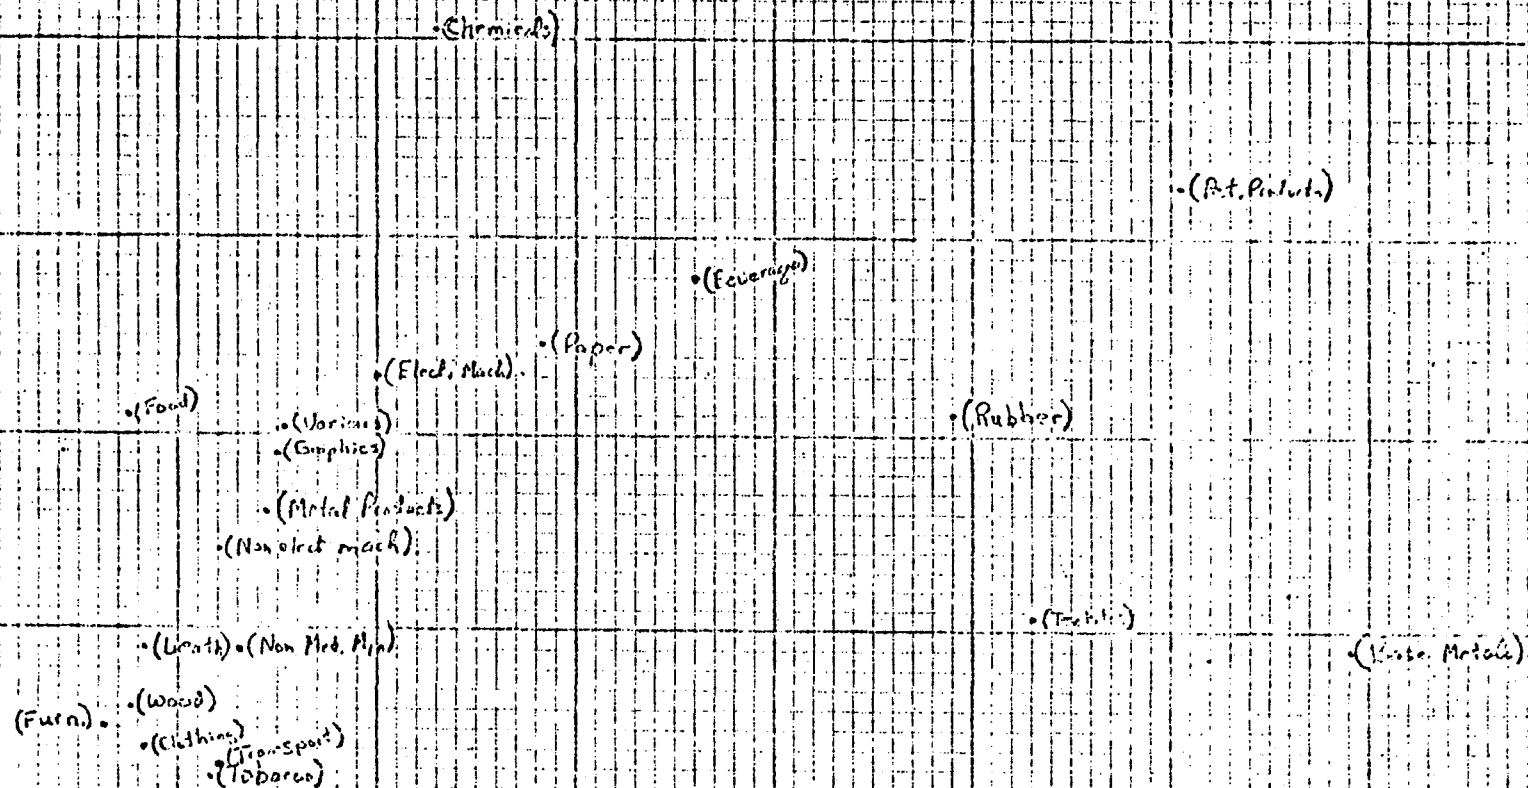 (Chemicals)
(Pet. Products)
(Beverage)
(Paper)
(Elect. Mach).
(Food)
(Various)
(Rubber)
(Graphics)
(Metal Products)
(Non elect mach)
(Textiles)
(Leath)
(Non Med. Min)
Metals)
(Wood)
(Furn.)
(Clothing)
(Transport)
(Tobacco)